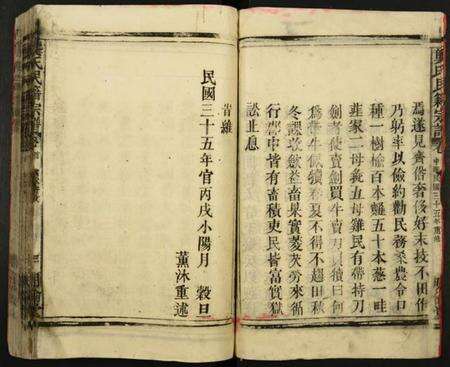 龔氏民籍宗譜
焉遂見齊俗奢侈好末技不田作
乃躬率以儉約勸民務桑農令口
種一樹榆百本薤五十本葱一畦
韭家二母彘五母雞民有帶持刀
劍者使賣劍買牛賣刀買犢曰何
爲帶牛佩犢春夏不得不趨田秋
冬課收斂益畜果實菱芡勞來循
行郡中皆有畜積吏民皆富實獄
訟止息
民國三十五年官丙戌小陽月 穀旦
薰沐重述
氏民籍宗